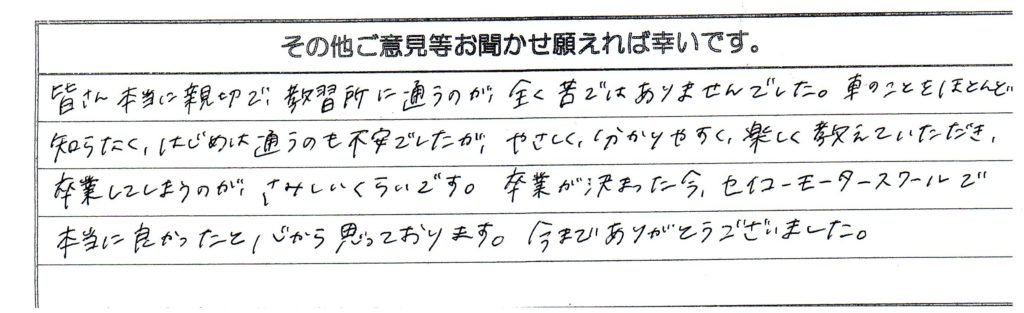 その他ご意見等お聞かせ願えれば幸いです。
皆さん本当に親切で、教習所に通うのが、全く苦ではありませんでした。車のことをほとんど
知らなく、はじめは通うのも不安でしたが、やさしく、分かりやすく、楽しく教えていただき、
卒業してしまうのが、さみしいくらいです。卒業が決まった今、セイコーモータースクールで
本当に良かったと心から思っております。今までありがとうございました。